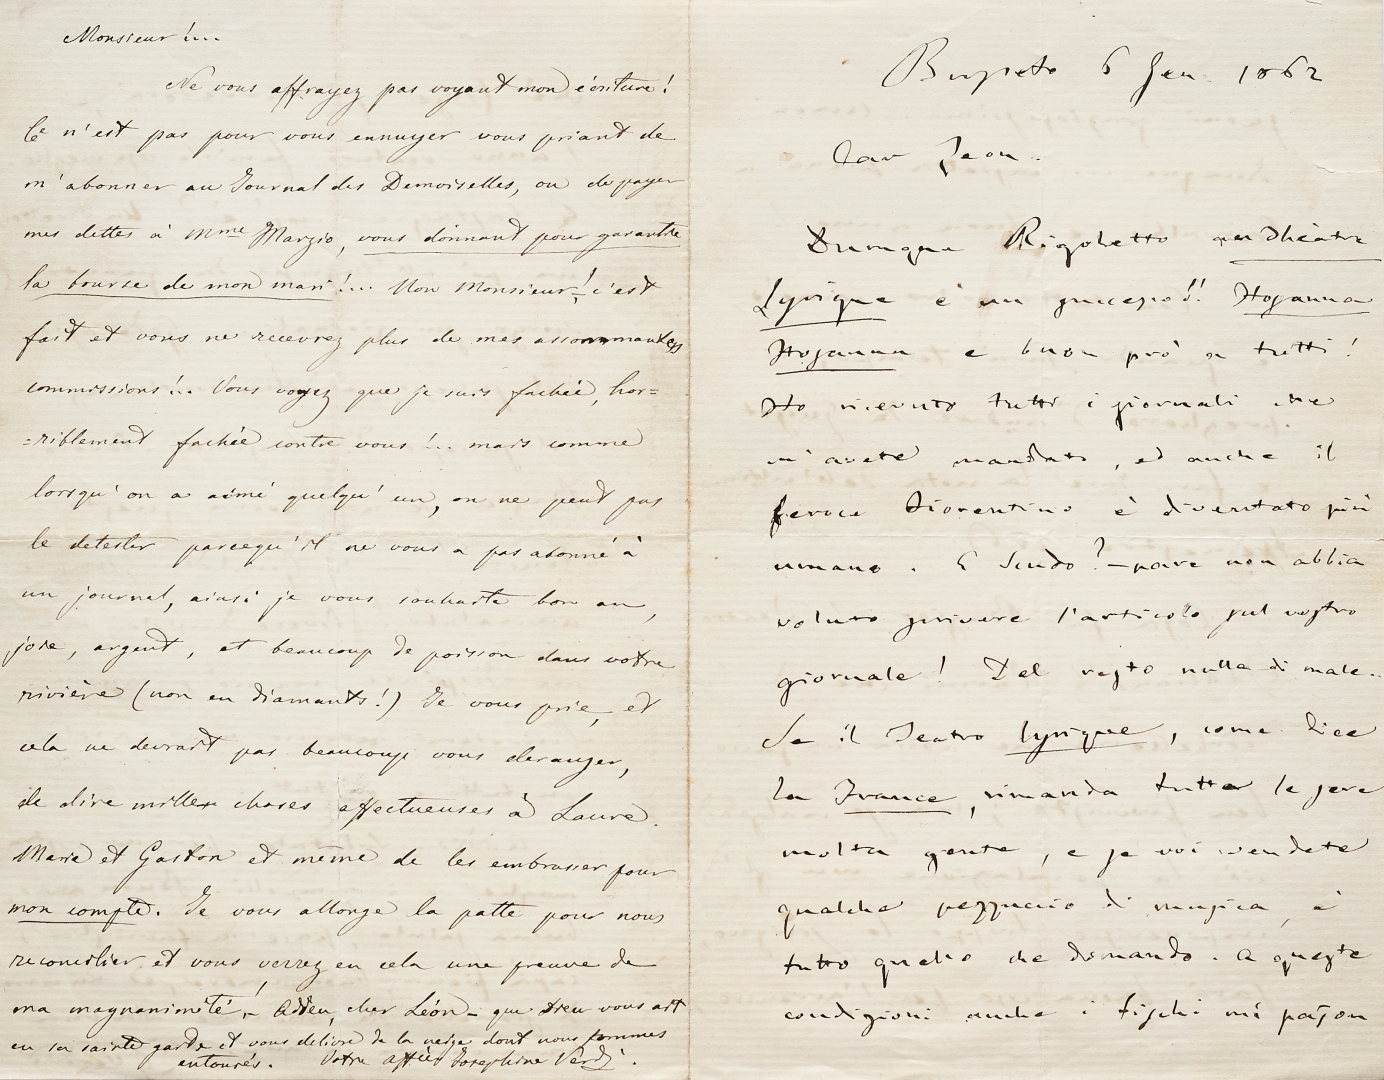 Monsieur!...
Ne vous affrayez pas voyant mon écriture!
Ce n'est pas pour vous ennuyer vous priant de
m'abonner au Journal des Demoiselles, ou de payer
mes dettes à Mme Marzio, vous donnant pour garantie
la bourse de mon mari!... Non Monsieur!, c'est
fait et vous ne recevrez plus de mes assommantes
commissions!.. Vous voyez que je suis fachée, hor=
=riblement fachée contre vous!.. mais comme
lorsqu'on a aimé quelqu'un, on ne peut pas
le detester parcequ'il ne vous a pas abonné à
un journal, ainsi je vous souhaite bon an,
joie, argent, et beaucoup de poisson dans votre
rivière (non en diamants!) Je vous prie, et
cela ne devrait pas beaucoup vous deranger,
de dire mille choses affectueuses à Laure.
Marie et Gaston et même de les embrasser pour
mon compte. Je vous allonge la patte pour nous
reconcilier et vous verrez en cela une preuve de
ma magnanimité! Adieu, cher Léon - que Dieu vous ait
en sa sainte garde et vous delivre de la neige dont nous sommes
entourés. Votre affée Josephine Verdi.
Busseto 6 Gen. 1862
Car Leon.
Dunque Rigoletto au Théâtre
Lyrique è un successo!! Hosanna
Hosanna e buon prò a tutti!
Ho ricevuto tutti i giornali che
m'avete mandato, ed anche il
feroce Fiorentino è diventato più
umano. E Scudo? - pare non abbia
voluto scrivere l'articolo sul vostro
giornale! Del resto nulla di male..
Se il Teatro Lyrique, come dice
la France, rimanda tutte le sere
molta gente, e se voi vendete
qualche pezzuccio di musica, è
tutto quello che domando. A queste
condizioni anche i fischi mi passon